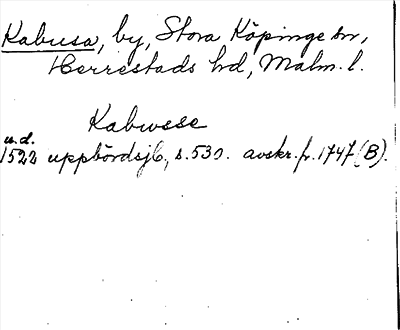 Kabusa, by, Stora Köpinge sn,
Herrestads hd, Malm. l.
Kabwsse
u.d.
1522 uppbördsjb, s. 530. avskr. fr. 1747 (B).